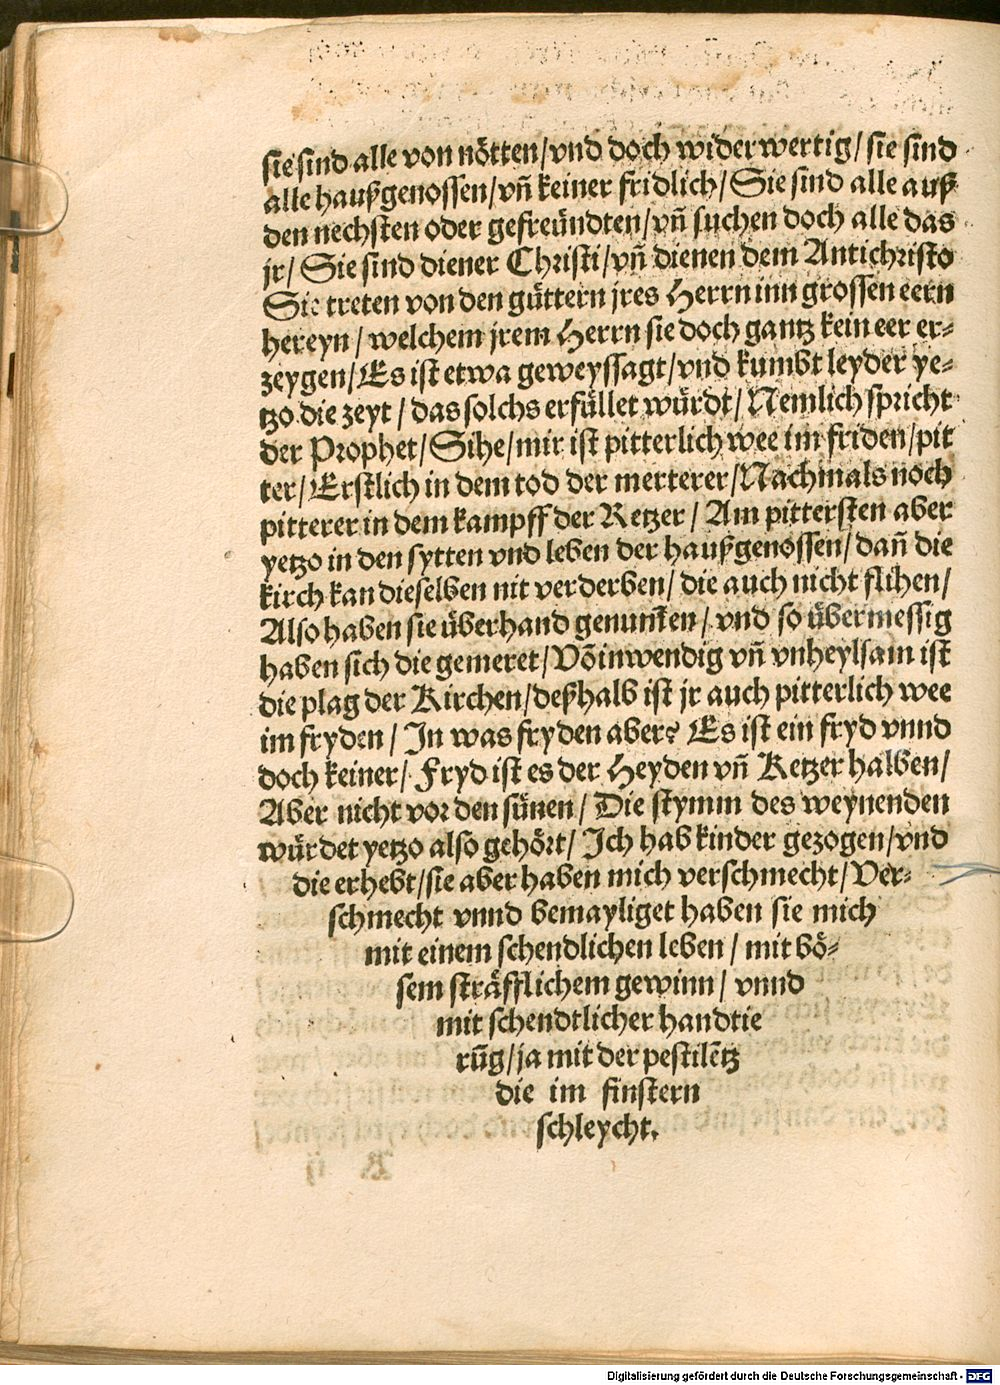 sie sind alle von nötten/vnd doch widerwertig/ sie sind
alle haußgenossen/vñ keiner fridlich/ Sie sind alle auß
den nechsten oder gefreündten/vñ suchen doch alle das
jr/ Sie sind diener Christi/vñ dienen dem Antichristo
Sie treten von den güttern jres Herrn inn grossen eern
hereyn/ welchem jrem Herrn sie doch gantz kein eer er-
zeygen/ Es ist etwa geweyssagt/vnd kumbt leyder ye-
tzo die zeyt/ das solchs erfüllet würdt/ Nemlich spricht
der Prophet/ Sihe/mir ist pitterlich wee im friden/pit
ter/ Erstlich in dem tod der merterer/ Nachmals noch
pitterer in dem kampff der Ketzer/ Am pittersten aber
yetzo in den sytten vnd leben der haußgenossen/ dañ die
kirch kan dieselben nit verderben/ die auch nicht flihen/
Also haben sie überhand genum̃en/ vnd so übermessig
haben sich die gemeret/ Võ inwendig vñ vnheylsam ist
die plag der Kirchen/ deßhalb ist jr auch pitterlich wee
im fryden/ In was fryden aber? Es ist ein fryd vnnd
doch keiner/ Fryd ist es der Heyden vñ Ketzer halben/
Aber nicht vor den sünen/ Die stymm des weynenden
würdet yetzo also gehört/ Ich hab kinder gezogen/vnd
die erhebt/sie aber haben mich verschmecht/ Ver-
schmecht vnnd bemayliget haben sie mich
mit einem schendlichen leben/ mit bö-
sem sträfflichem gewinn/ vnnd
mit schendtlicher handtie
rũg/ja mit der pestilẽtz
die im finstern
schleycht.
Digitalisierung gefördert durch die Deutsche Forschungsgemeinschaft - DFG